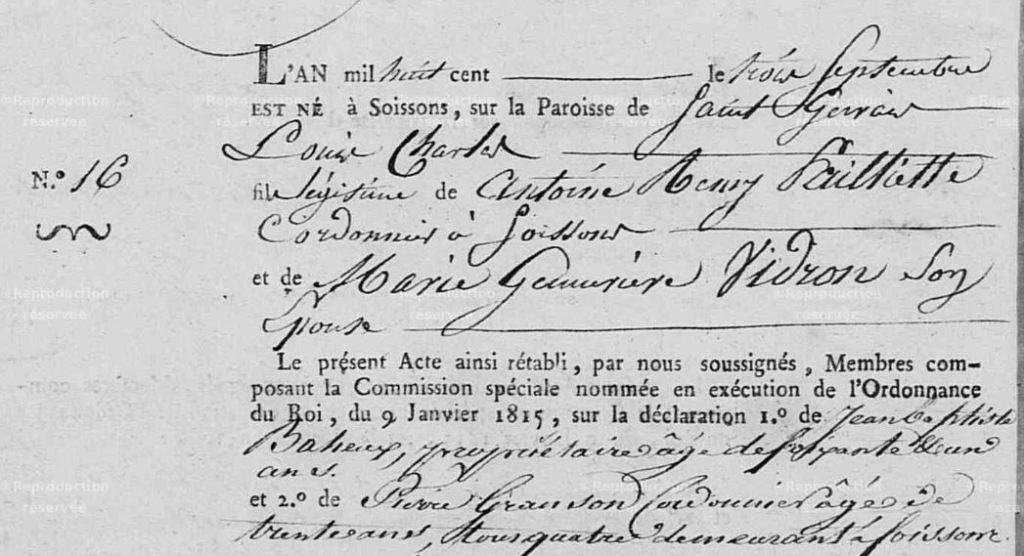 L'AN mil huit cent le trois Septembre
EST NÉ à Soissons, sur la Paroisse de Saint Gervais
Louis Charles
N.º 16
fils légitime de Antoine Henry Pailliette
Cordonnier à Soissons
et de Marie Genevieve Vidron Son
Epouse
Le présent Acte ainsi rétabli, par nous soussignés, Membres com-
posant la Commission spéciale nommée en exécution de l'Ordonnance
du Roi, du 9 Janvier 1815, sur la déclaration 1.º de Jean Baptiste
Baheux, propriétaire âgé de soixante & un
ans.
et 2.º de Pierre Granson Cordonnier âgé de
trente ans, tous quatre demeurant à Soissons.